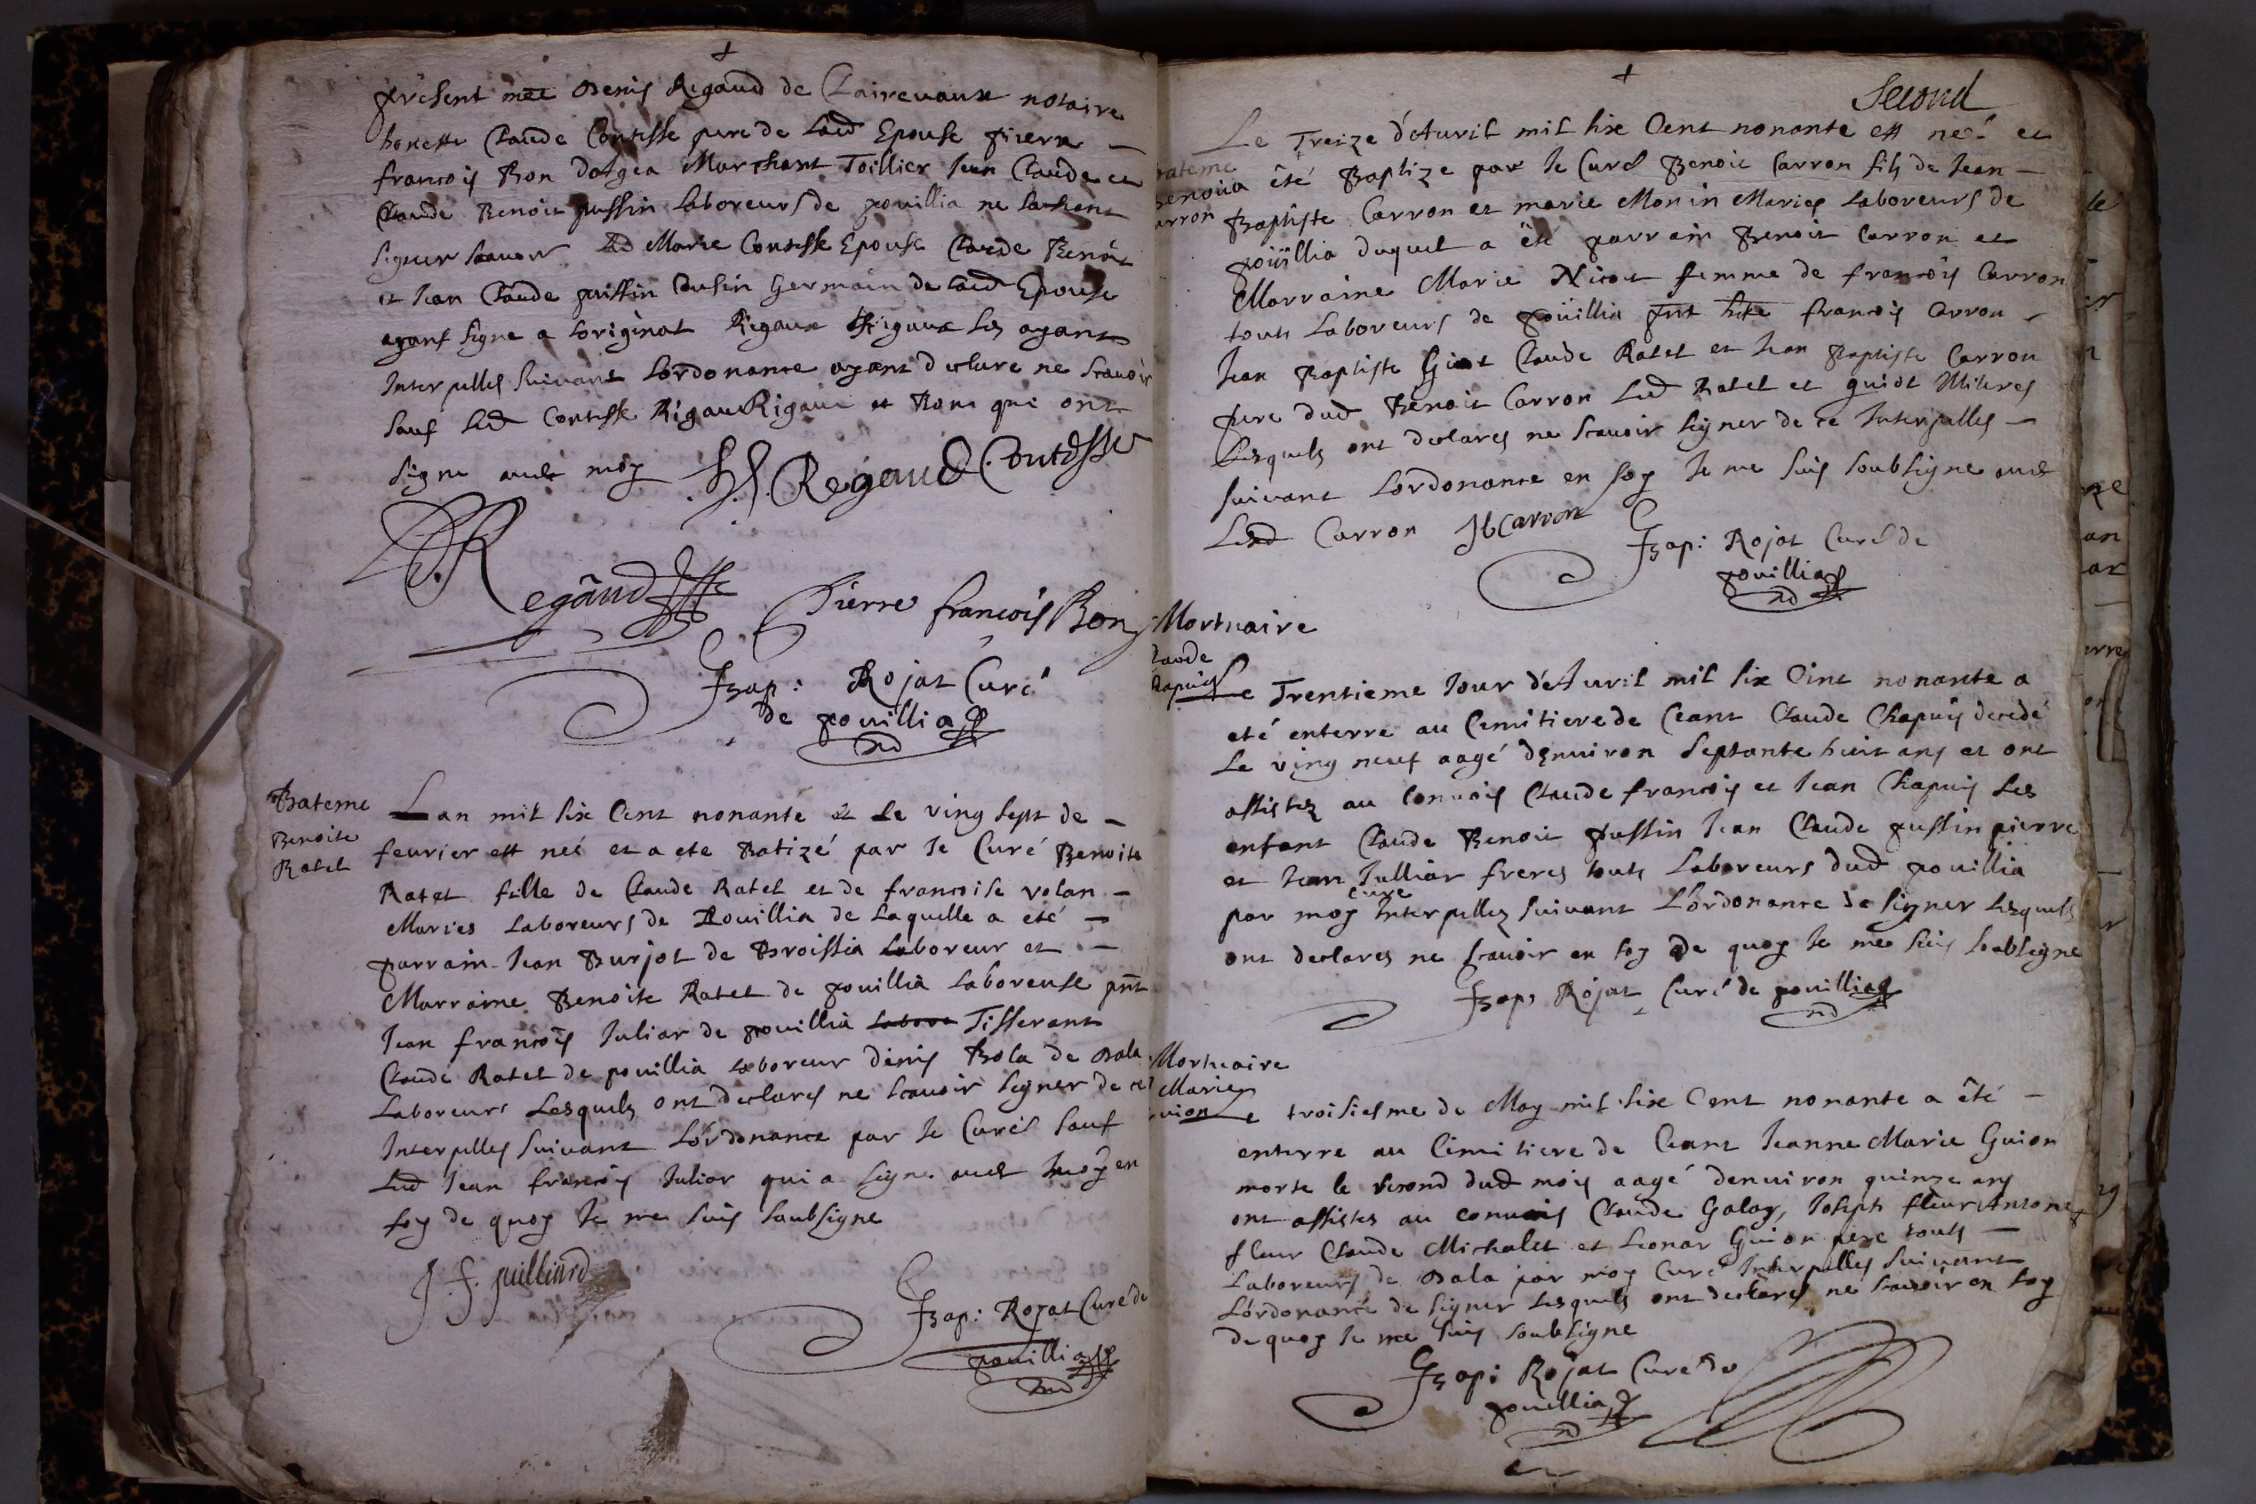 present mre Denis Rigaud de Clairevaux notaire
honeste Claude Contesse pere de lad Epouse pierre
francois Bon dorgea Marchant Toillier Jean Claude et
Claude Benoit pussin Laboreurs de pouillia ne sachent
signer Lad Marie Contesse Epouse Claude Benoit
et Jean Claude pussin Cousin Germain de lad Epouse
ayant signe a loriginat Rigaux Rigaux les ayant
Interpelles suivant Lordonance ayant declare ne scavoir
sauf Led Contesse Rigau Rigaux et Bon qui ont
signe avec moy Regaud Contesse
Regaud
Pierre francois Bon
Bap: Rojat Curé
de pouillia
Bateme
Benoite
Ratet
Lan mil six Cent nonante et Le ving sept de
feurier est neé et a ete Batizé par le Curé Benoite
Ratet fille de Claude Ratet et de francoise volan
Maries Laboreurs de Pouillia de Laquelle a eté
parrain Jean Burjot de Broissia Laboreur et
Marraine Benoite Ratet de pouillia Laboreuse pnt
Jean francois Juliar de pouillia Labore Tisserant
Claude Ratet de pouillia Laboreur denis Bola de Dala
Laboreurs Lesquels ont declares ne scavoir signer de ce
Interpelles suivant Lordonance par le Curé sauf
Led Jean francois Juliar qui a signe avec moy en
foy de quoy Je me suis soubsigne
J. f. juilliard
Bap: Rojat Curé de
pouillia
Second
Bateme
Benoit
Carron
Le Treize d'Avril mil six Cent nonante est neé et
a êté Baptize par le Curé Benoit Carron fils de Jean
Baptiste Carron et marie Monin Maries Laboreurs de
pouïllia duquel a êté parrain Benoit Carron et
Marraine Marie Nicot femme de francois Carron
touts Laboreurs de pouïllia pnt francois Carron
Jean Baptiste Guiot Claude Ratet et Jean Baptiste Carron
pere dud Benoit Carron Led Ratet et guiot
Lesquels ont declares ne scavoir signer de ce Interpelles
suivant Lordonance en foy Je me suis soubsigne avec
Led Carron JbCarron
Bap: Rojat Curé de
pouillia
Mortuaire
Claude
Chapuis
Le Trentieme Jour d'Avril mil six Cent nonante a
eté enterre au Cemitiere de Ceant Claude Chapuis decedé
Le ving neuf aagé denviron septante huit ans et ont
assistez au Convois Claude francois et Jean Chapuis ses
enfant Claude Benoit pussin Jean Claude pussin pierre
et Jean Julliar freres touts Laboreurs dud pouillia
par moy curé Interpellez suivant Lordonance de signer Lesquels
ont declares ne scavoir en foy De quoy Je me suis soubsigne
Bap: Rojat Curé de pouillia
Mortuaire
Marie
Guion
Le troisiesme de May mil six Cent nonante a êté
enterre au Cimitiere de Ceant Jeanne Marie Guion
morte le second dud mois aagé denviron quinze ans
ont assistes au convois Claude Galay, Joseph fleur Antoine
fleur Claude Michalet et Leonar Guion pere touts
Laboreurs de Dala par moy Curé Interpelles suivant
Lordonance de signer Lesquels ont declares ne scavoir en foy
de quoy Je me suis soubsigne
Bap: Rojat Curé de
pouillia